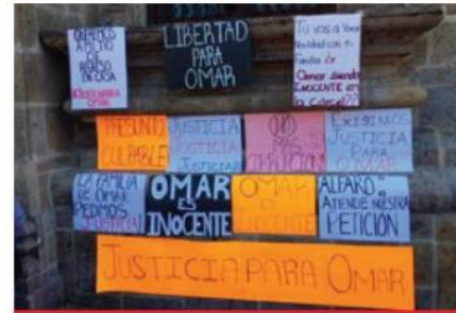 QUEREMOS
A
DE
REGRESO
EN CASA
LIBERTAD
PARA
OMAR
Tú vas a
Navidad con tu
Familia
Omar siendo
INOCENTE en
la cárcel???
PRESUNTO
CULPABLE
JUSTICIA
JUSTICIA
JUSTICIA
NO
MAS
CORRUPCION
EXIGIMOS
JUSTICIA
PARA
OMAR
LA FAMILIA
DE OMAR
PEDIMOS
JUSTICIA
OMAR
ES
INOCENTE
OMAR
ES
INOCENTE
ALFARO:
ATIENDE NUESTRA
PETICIÓN
JUSTICIA PARA OMAR